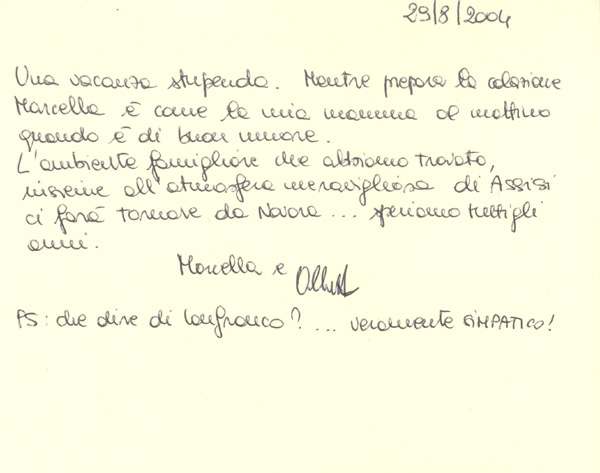 29/8/2004
Una vacanza stupenda. Mentre prepara la colazione
Marcella è come la mia mamma al mattino
quando è di buon umore.
L'ambiente famigliare che abbiamo trovato,
insieme all'atmosfera meravigliosa di Assisi
ci farà tornare da Novara ... speriamo tutti gli
anni.
Marcella e
PS: che dire di Lanfranco? ... veramente SIMPATICO!